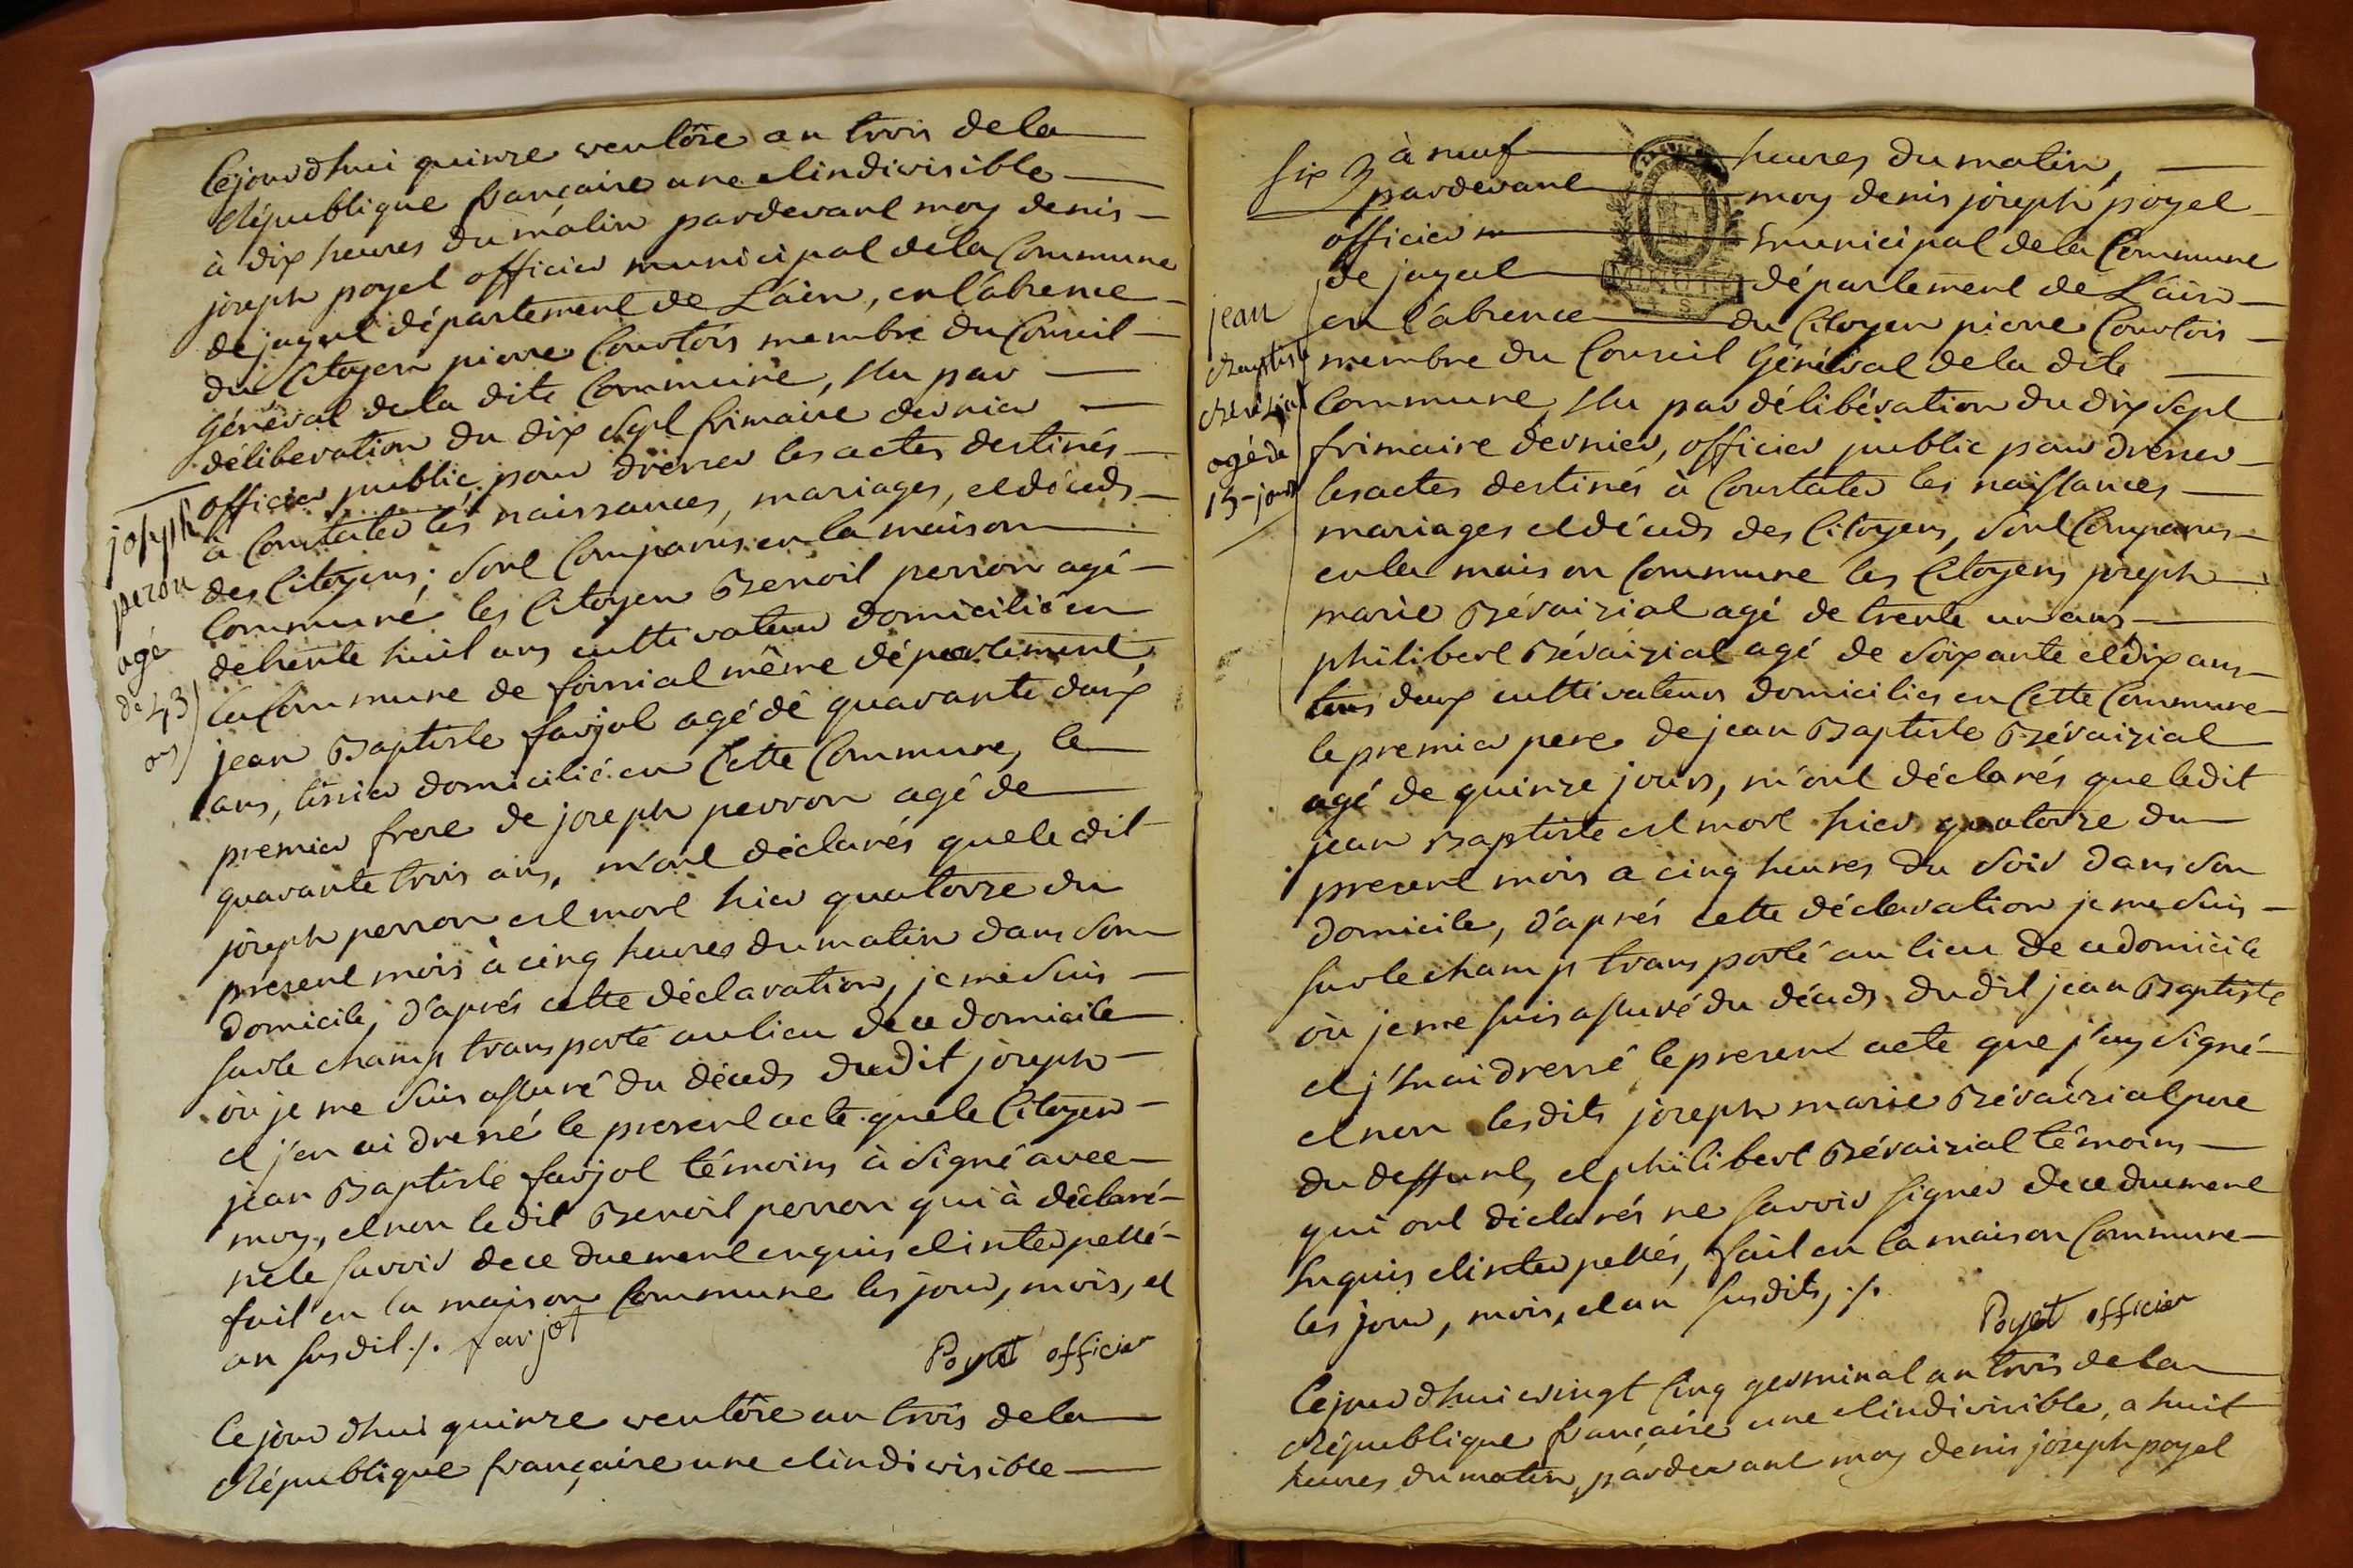 Cejourd'hui quinze ventôse an trois de la
République française une et indivisible
à dix heures du matin pardevant moy denis
joseph poyet officier municipal de la Commune
de jayat département de L'ain, en l'absence
du Citoyen pierre Courtois membre du Conseil
Général de la dite Commune, élu par
délibération du dix sept frimaire dernier
officier public, pour dresser les actes destinés
à Constater les naissances, mariages, et décèds
des Citoyens; sont Comparus en la maison
Commune les Citoyen Benoit perron agé
de trente huit ans cultivateur domicilié en
la Commune de foissiat même département,
jean Baptiste farjot agé de quarante deux
ans, tissier domicilié en Cette Commune, le
premier frere de joseph perron agé de
quarante trois ans, m'ont déclarés que le dit
joseph perron est mort hier quatorze du
present mois à cinq heures du matin dans son
domicile, d'aprés cette déclaration, je me suis
sur le champ transporté au lieu de ce domicile
où je me suis assuré du décèds du dit joseph
et j'en ai dressé le present acte que le Citoyen
jean Baptiste farjot témoins à signé avec
moy, et non le dit Benoit perron qui à déclaré
ne le savoir de ce duement enquis et interpellé
fait en la maison Commune les jour, mois, et
an susdit ./. farjot
Poyet officier
joseph
peron
agé
de 43
ans
Cejourd'hui quinze ventôse an trois de la
République française une et indivisible
six
à neuf heures du matin,
pardevant moy denis joseph poyet
officier m municipal de la Commune
de jayat département de L'ain
en l'absence du Citoyen pierre Courtois
membre du Conseil Général de la dite
Commune, élu par délibération du dix sept
frimaire dernier, officier public pour dresser
les actes destinés à Constater les naissances
mariages et décèds des Citoyens, sont Comparus
en la maison Commune les Citoyens joseph
marie Bévaizial agé de trente un ans
philibert Bévaizial agé de soixante et dix ans
tous deux cultivateurs domiciliés en Cette Commune
le premier pere de jean Baptiste Bévaizial
agé de quinze jours, m'ont déclarés que le dit
jean Baptiste est mort hier quatorze du
present mois a cinq heures du soir dans son
domicile, d'aprés cette déclaration je me suis
sur le champ transporté au lieu de ce domicile
où je me suis assuré du décèds du dit jean Baptiste
et j'en ai dressé le present acte que j'ay signé
et non les dits joseph marie Bévaizial pere
du deffunt, et philibert Bévaizial témoins
qui ont déclarés ne savoir signer de ce duement
enquis et interpellés, fait en la maison Commune
les jour, mois, et an susdits, ./.
Poyet officier
jean
Baptiste
agé de
15 jours
Cejourd'hui vingt cinq germinal an trois de la
République française une et indivisible, a huit
heures du matin, pardevant moy denis joseph poyet